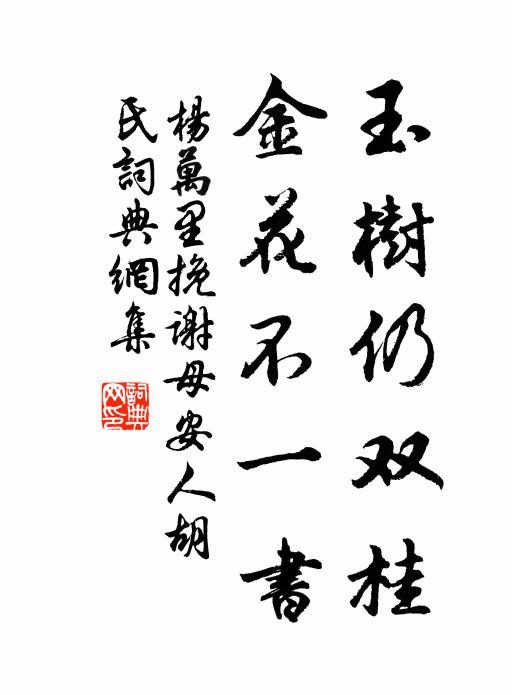 玉樹仍双桂
金花不一書
楊萬里挽謝母安人胡
氏詞典網集
詞典
网印